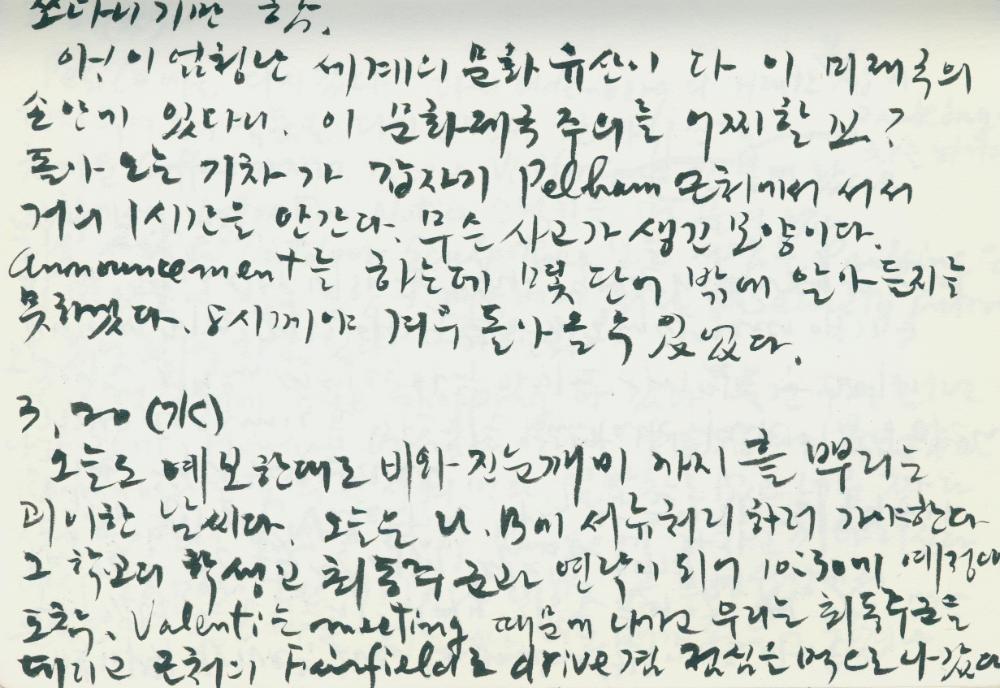 쏘다니기만 함.
아! 이 엄청난 세계의 문화유산이 다 이 미제국의
손안에 있다니. 이 문화제국주의를 어찌할꼬?
돌아오는 기차가 갑자기 Pelham 근처에서 서서
거의 1시간을 안간다. 무슨 사고가 생긴 모양이다.
announcement를 하는데 몇 단어 밖에 알아듣지를
못하겠다. 8시께야 겨우 돌아올수 있었다.
3. 20 (水)
오늘도 예보한대로 비와 진눈깨비 까지 흩뿌리는
괴이한 날씨다. 오늘은 U.B에 서류처리하러 가야한다
그 학교의 학생인 최동주 군과 연락이 되어 10:30에 예정대
도착. Valenti는 meeting 때문에 나가고 우리는 최동주군을
데리고 근처의 Fairfield로 drive겸 점심을 먹으로 나갔다